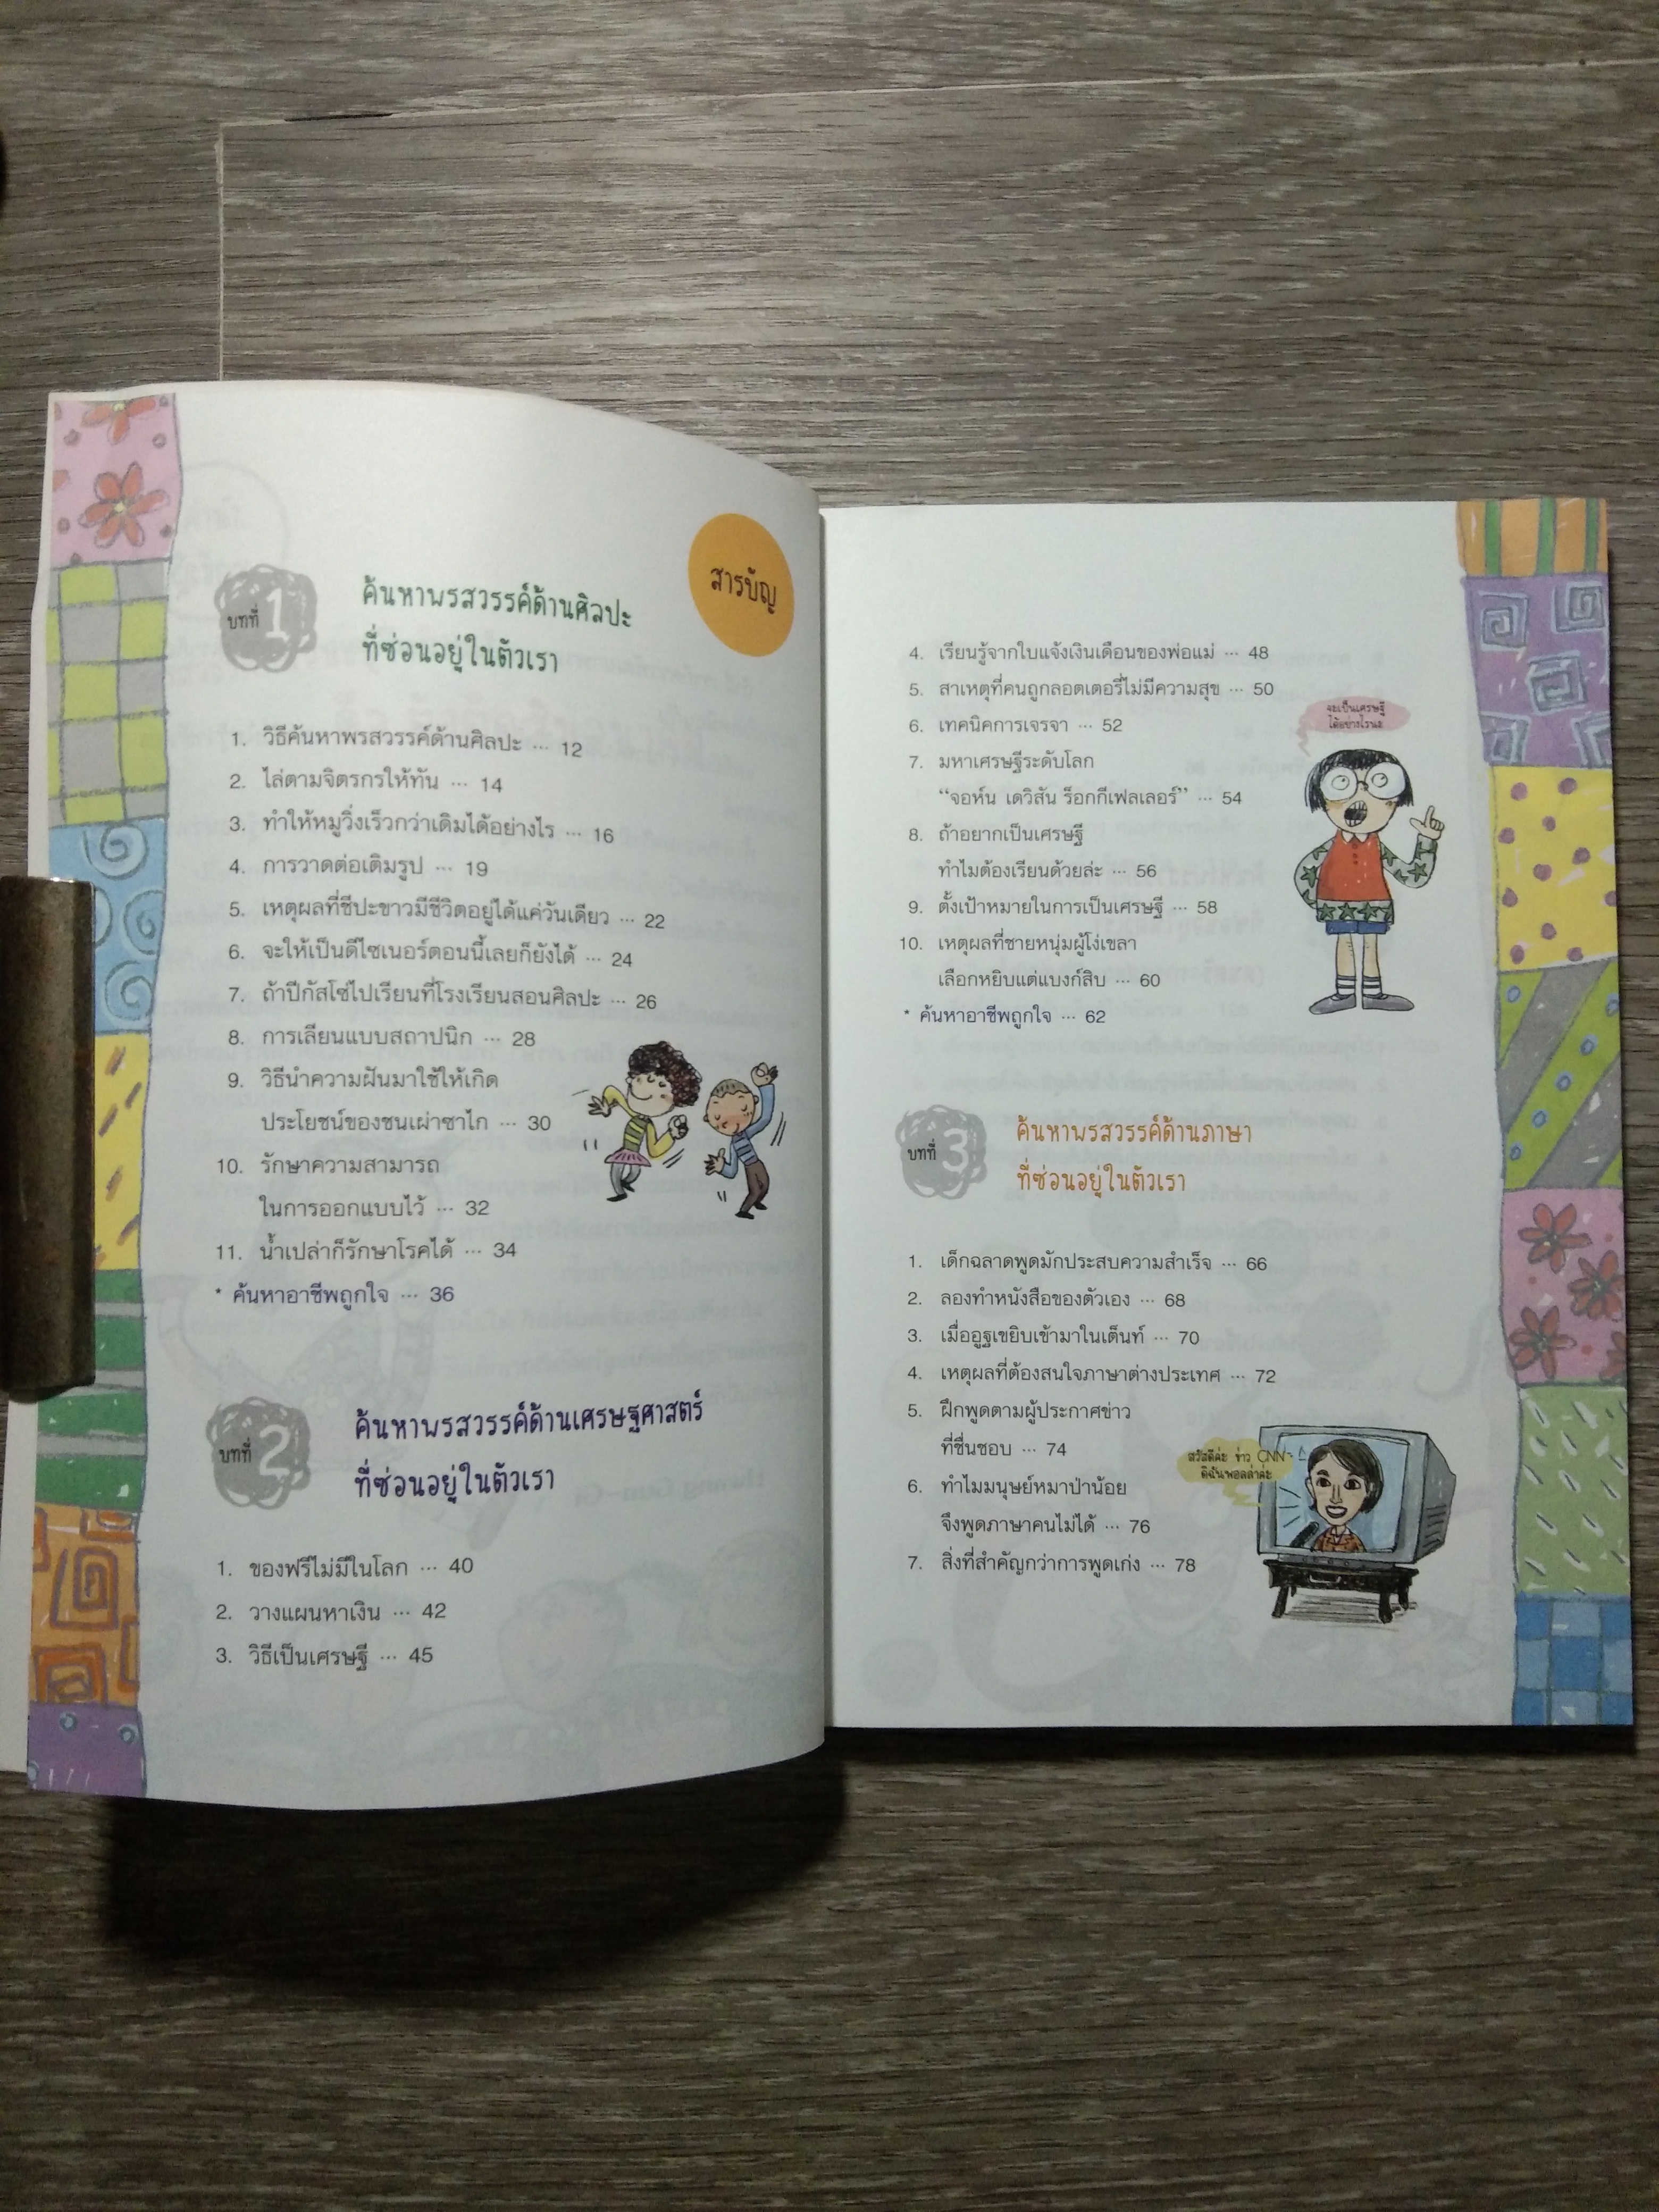 สารบัญ
บทที่ 1
ค้นหาพรสวรรค์ด้านศิลปะ
ที่ซ่อนอยู่ในตัวเรา
1. วิธีค้นหาพรสวรรค์ด้านศิลปะ ... 12
2. ไล่ตามจิตรกรให้ทัน ... 14
3. ทำให้หมูวิ่งเร็วกว่าเดิมได้อย่างไร ... 16
4. การวาดต่อเติมรูป ... 19
5. เหตุผลที่ชีปะขาวมีชีวิตอยู่ได้แค่วันเดียว ... 22
6. จะให้เป็นดีไซเนอร์ตอนนี้เลยก็ยังได้ ... 24
7. ถ้าปีกัสโซ่ไปเรียนที่โรงเรียนสอนศิลปะ ... 26
8. การเลียนแบบสถาปนิก ... 28
9. วิธีนำความฝันมาใช้ให้เกิด
ประโยชน์ของชนเผ่าซาไก ... 30
10. รักษาความสามารถ
ในการออกแบบไว้ ... 32
11. น้ำเปล่าก็รักษาโรคได้ ... 34
* ค้นหาอาชีพถูกใจ ... 36
บทที่ 2
ค้นหาพรสวรรค์ด้านเศรษฐศาสตร์
ที่ซ่อนอยู่ในตัวเรา
1. ของฟรีไม่มีในโลก ... 40
2. วางแผนหาเงิน ... 42
3. วิธีเป็นเศรษฐี ... 45
4. เรียนรู้จากใบแจ้งเงินเดือนของพ่อแม่ ... 48
5. สาเหตุที่คนถูกลอตเตอรี่ไม่มีความสุข ... 50
6. เทคนิคการเจรจา ... 52
7. มหาเศรษฐีระดับโลก
“จอห์น เดวิสัน ร็อกกีเฟลเลอร์” ... 54
8. ถ้าอยากเป็นเศรษฐี
ทำไมต้องเรียนด้วยล่ะ ... 56
9. ตั้งเป้าหมายในการเป็นเศรษฐี ... 58
10. เหตุผลที่ชายหนุ่มผู้โง่เขลา
เลือกหยิบแต่แบงก์สิบ ... 60
* ค้นหาอาชีพถูกใจ ... 62
จะเป็นเศรษฐี
ได้อย่างไรนะ
บทที่ 3
ค้นหาพรสวรรค์ด้านภาษา
ที่ซ่อนอยู่ในตัวเรา
1. เด็กฉลาดพูดมักประสบความสำเร็จ ... 66
2. ลองทำหนังสือของตัวเอง ... 68
3. เมื่ออูฐเขยิบเข้ามาในเต็นท์ ... 70
4. เหตุผลที่ต้องสนใจภาษาต่างประเทศ ... 72
5. ฝึกพูดตามผู้ประกาศข่าว
ที่ชื่นชอบ ... 74
6. ทำไมมนุษย์หมาป่าน้อย
จึงพูดภาษาคนไม่ได้ ... 76
7. สิ่งที่สำคัญกว่าการพูดเก่ง ... 78
สวัสดีค่ะ ข่าว CNN
ดิฉันพอลล่าค่ะ